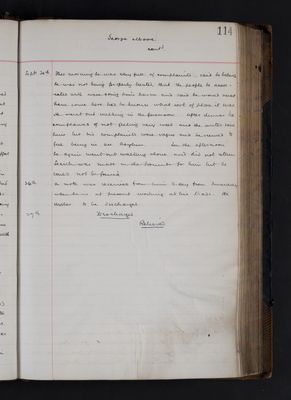 114
George Moore
cont'd
Sept. 24th This morning he was very full of complaints, said he believed
he was not being properly treated that the people he asso-
ciates with were doing him harm and said he would never
have come here had he known what sort of place it was
He went out walking in the forenoon. After dinner he
complained of not feeling very well and the writer saw
him but his complaints were vague and he seemed to
feel being in an Asylum. In the afternoon
he again went out walking alone and did not return
Search was made in the grounds for him but he
could not be found.
26th A note was received from him to day from
where he is at present working at his trade. He
wishes to be discharged.
27th Discharged
Relieved